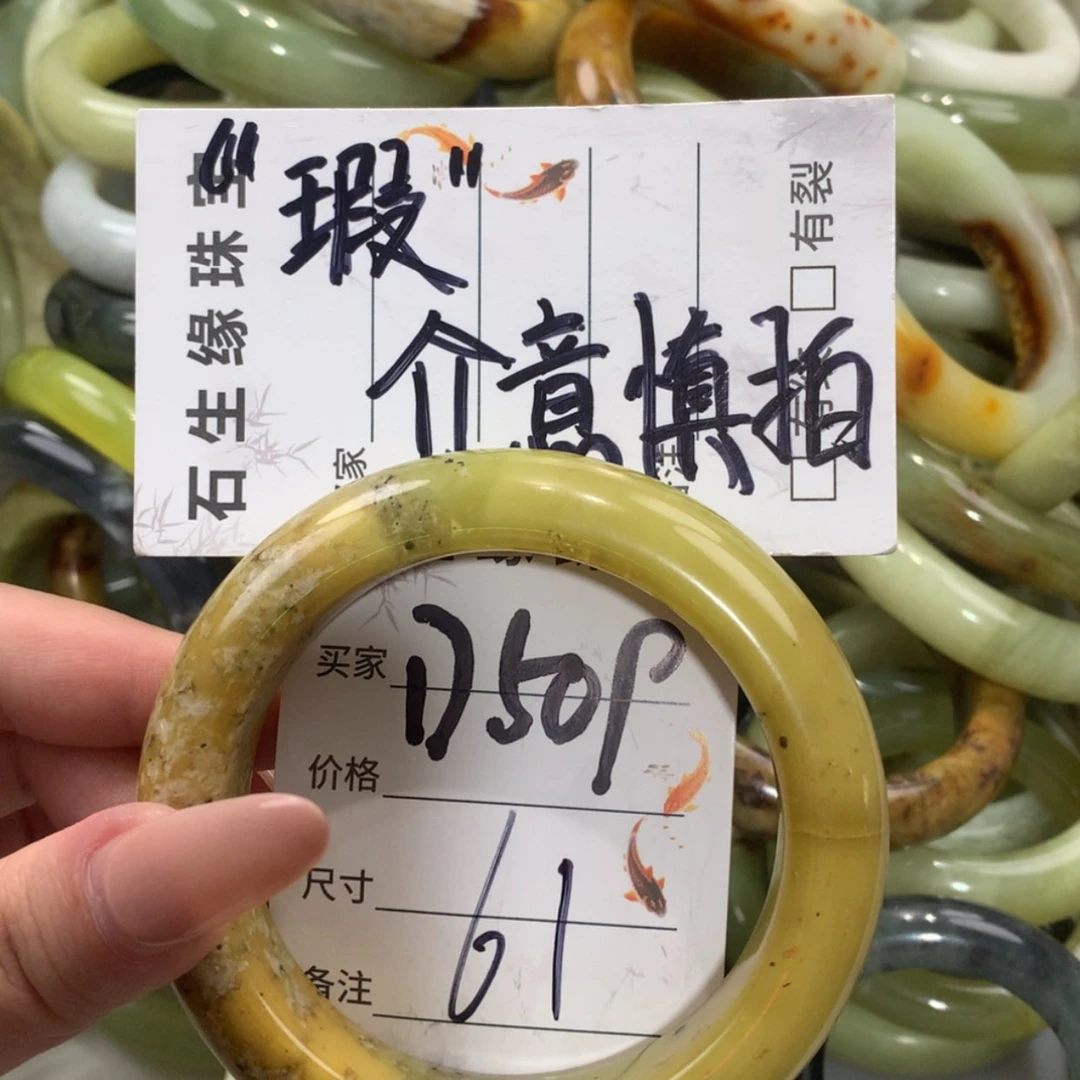 石生缘珠宝
“瑕”
介意慎拍
有裂
买家 D50P
价格
尺寸 61
备注